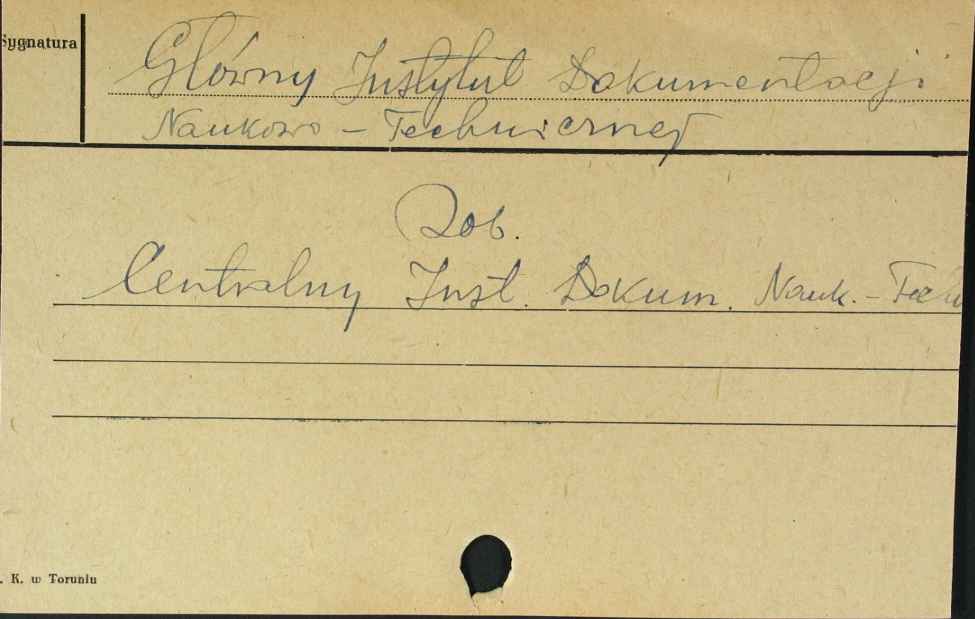 Sygnatura
Główny Instytut Dokumentacji
Naukowo - Technicznej
Zob.
Centralny Inst. Dokum. Nauk. - Techn
. K. w Toruniu